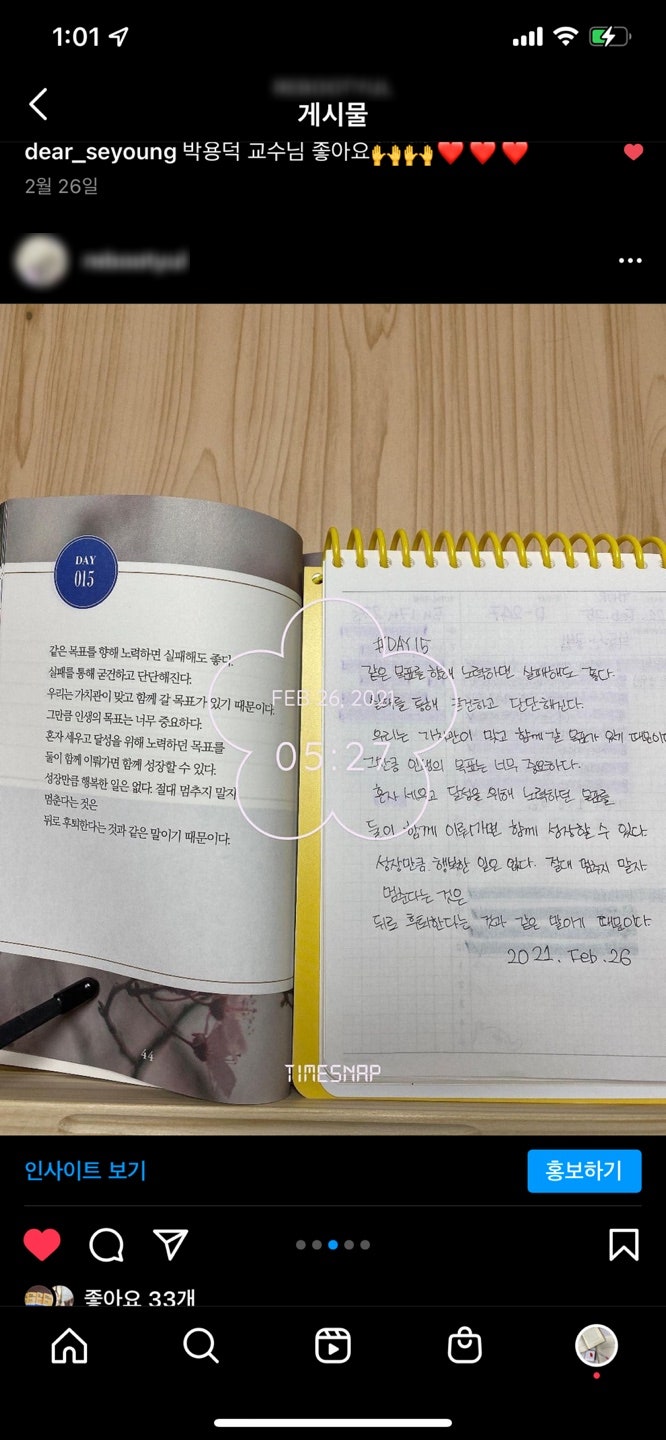 1:01
게시물
dear_seyoung 박용덕 교수님 좋아요🙌🙌❤️❤️❤️
2월 26일
DAY
015
같은 목표를 향해 노력하면 실패해도 좋다.
실패를 통해 굳건하고 단단해진다.
우리는 가치관이 맞고 함께 갈 목표가 있기 때문이다.
그만큼 인생의 목표는 너무 중요하다.
혼자 세우고 달성을 위해 노력하던 목표를
둘이 함께 이뤄가면 함께 성장할 수 있다.
성장만큼 행복한 일은 없다. 절대 멈추지 말자
멈춘다는 것은
뒤로 후퇴한다는 것과 같은 말이기 때문이다.
44
#DAY15
같은 목표를 향해 노력하면 실패해도 좋다.
실패를 통해 굳건하고 단단해진다.
우리는 가치관이 맞고 함께 갈 목표가 있기 때문이다
그만큼 인생의 목표는 너무 중요하다.
혼자 세우고 달성을 위해 노력하던 목표를
둘이 함께 이뤄가면 함께 성장할 수 있다
성장만큼 행복한 일은 없다. 절대 멈추지 말자
멈춘다는 것은
뒤로 후퇴한다는 것과 같은 말이기 때문이다.
2021. Feb. 26
FEB 26, 2021
05:27
TIMESNAP
인사이트 보기
홍보하기
좋아요 33개